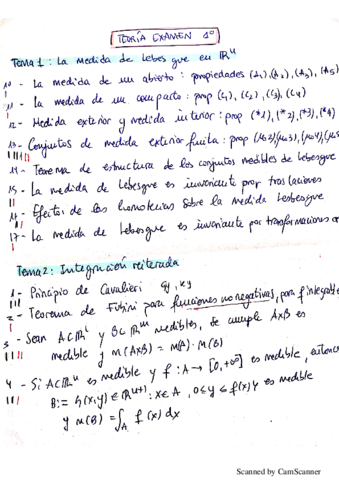 TEORÍA EXAMEN 1º
Tema 1: La medida de Lebesgue en ℝⁿ
10 - La medida de un abierto: propiedades (A1), (A2), (A3), (A5)
11 - La medida de un compacto: prop (C1), (C2), (C3), (C4)
12 - Medida exterior y medida interior: prop (*1), (*2), (*3), (*4)
13 - Conjuntos de medida exterior finita: prop (M2)/(M3), (M4),
14 - Teorema de estructura de los conjuntos medibles de Lebesgue
15 - La medida de Lebesgue es invariante por traslaciones
- Efectos de las homotecias sobre la medida Lesbesgue
17 - La medida de Lebesgue es invariante por transformaciones
Tema 2: Integración reiterada
1 - Principio de Cavalieri
2 - Teorema de Fubini para funciones no negativas, para f integrable
3 - Sean A⊂ℝˡ y B⊂ℝᵐ medibles, se cumple A×B es
medible y m(A×B) = m(A)·m(B)
4 - Si A⊂ℝⁿ es medible y f: A → [0,+∞] es medible, entonces
B:= {(x,y) ∈ ℝⁿ⁺¹: x∈A, 0≤y≤f(x)} es medible
y m(B) = ∫_A f(x) dx
Scanned by CamScanner